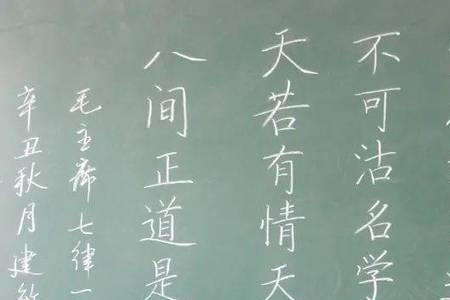 不可沽名学
天若有情天
人间正道是
毛主席七律一
辛丑秋月建